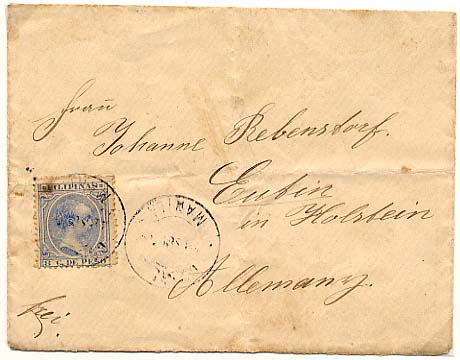 Frau
Johanne Rebenstorf.
Eutin
in Holstein
Allemany.
frei.
FILIPINAS
8 C. DE PESO
MANILA